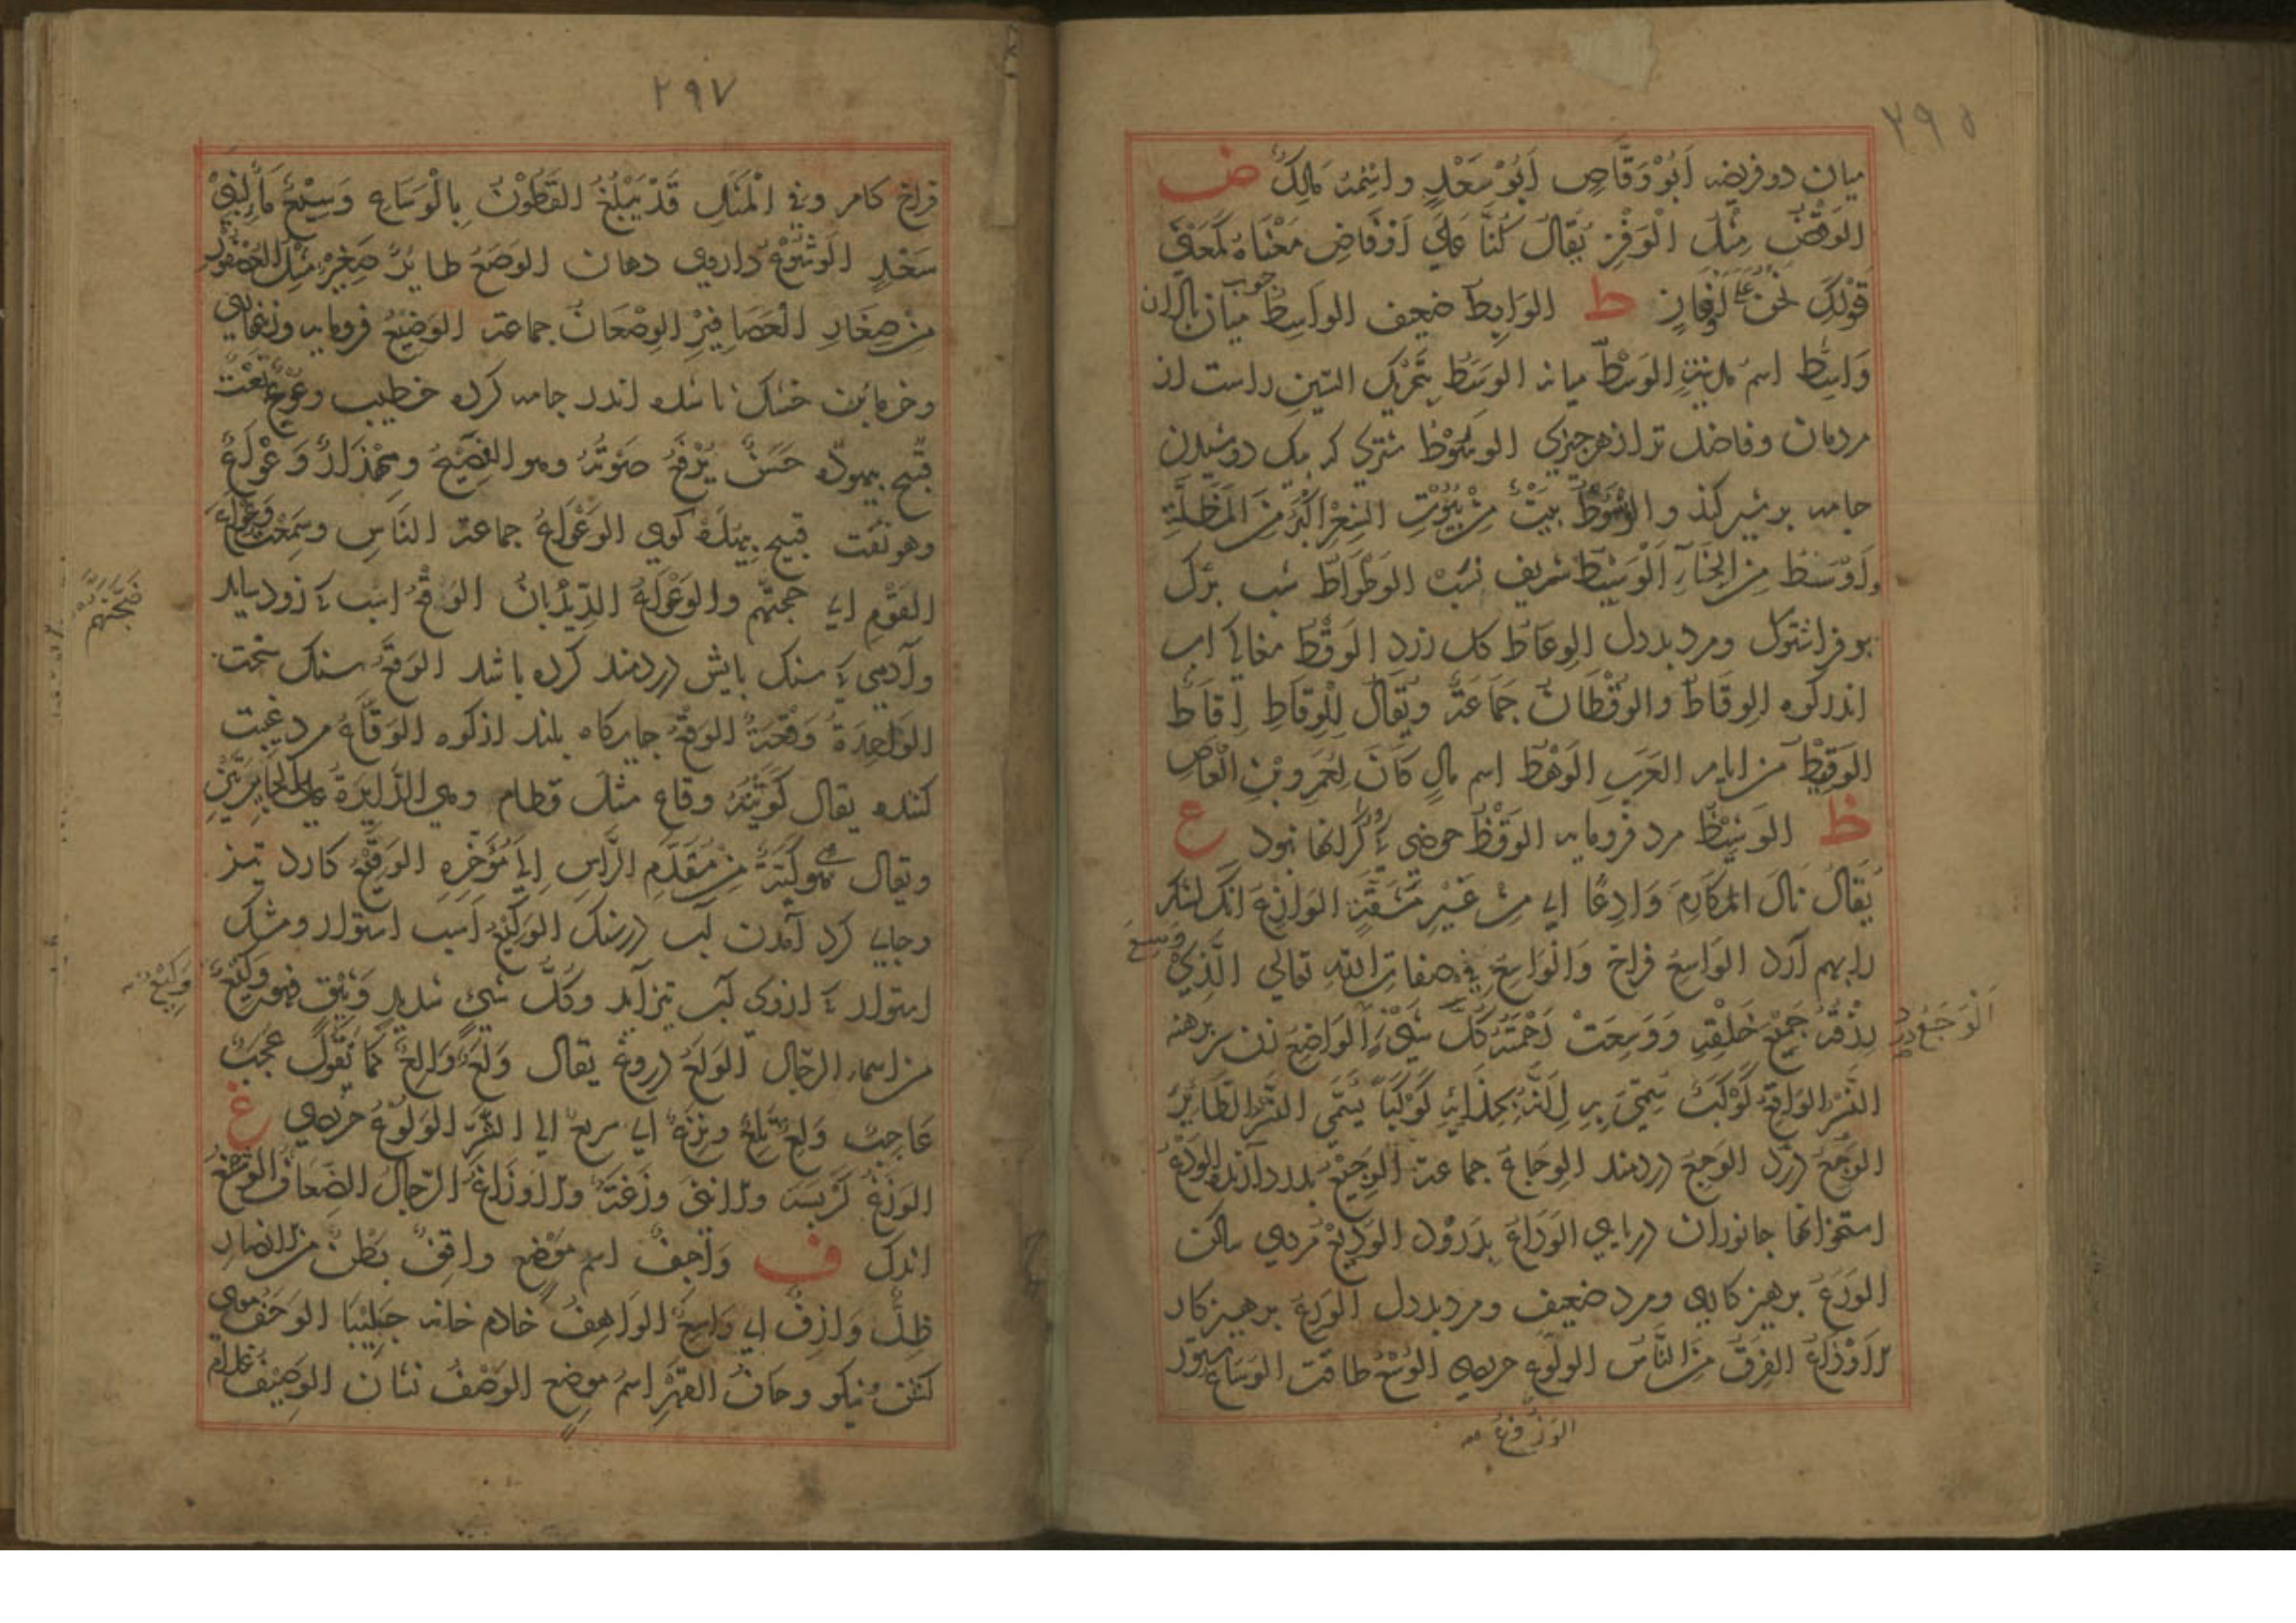 ٢٩٥
ميان دو فريضه اَبُوْ وَقَّاصٍ اَبُوْ سَعْدٍ واسْمُهُ مَالِكٌ ض
الوَفْضُ مِثْلُ الْوَفْزِ يُقَالُ كُنَّا عَلَى اَوْفَاضٍ مَعْنَاهُ كَمَعْنَى
قَوْلِكَ نَحْنُ عَلَى اَوْفَازٍ ط الوَابِطُ ضعيف الواسِطُ چوب ميان پالان
وَاسِطُ اسمُ مدينةٍ الوَسْطُ ميانه الوَسَطُ بِتَحْرِيكِ السّينِ راست از
مردمان وفاضل تر از هر چيزي الوَسُوْطُ شتري كه بيك دوشيدن
جامه بر شير كند والوَسُوْطُ بَيْتٌ مِنْ بُيُوْتِ الشَّعْرِ اَكْبَرُ مِنَ المَظَلَّةِ
وَاَوْسَطُ مِنَ الخِبَآءِ اَلْوَسِيْطُ شريف نسب الوَطْوَاطُ شب پرك
وفراشتوك ومرد بددل الوِعَاطُ گل زرد الوَقْطُ مغاكِ آب
اندر كوه الوِقَاطُ والوِقْطَانُ جَمَاعَةٌ وَيُقَالُ لِلْوِقَاطِ اِقَاطٌ
الوَقِيْطُ من ايام العَرَبِ الوَهْطُ اسم مالٍ كَانَ لِعَمْرِو بْنِ الْعَاصِ
ظ الوَشِيْظُ مرد فرومايه الوَقْظُ حوضي كه او را كرانها نبود ع
يُقَالُ نَالَ المَكَارِمَ وَادِعًا اي مِنْ غَيْرِ مَشَقَّةٍ الوَازِعُ آنك لشكر
را بهم آرد الواسِعُ فراخ وَالْوَاسِعُ في صفاتِ اللهِ تعالى الَّذِيْ وَسِعَ
رِزْقُهُ جَمِيْعَ خَلْقِهِ وَوَسِعَتْ رَحْمَتُهُ كُلَّ شَيْءٍ الوَاضِعُ زن برهنه
النَّسْرُ الوَاقِعُ كَوْكَبٌ سُمِّيَ بِهِ لِاَنَّهُ بِحِذَائِهِ كَوْكَبًا يُسَمَّى النَّسْرَ الطَّايِرَ
الوَجَعُ درد الوَجِعُ دردمند الوِجَاعُ جماعة الوَجِيْعُ بدرد آرنده الوَدَعُ
استخوانها جانوران دريايي الوَدَاعُ بدرود الوَدِيْعُ مردي ساكن
الوَرَعُ پرهيز كاري ومرد ضعيف ومرد بددل الوَرِعُ پرهيزكار
الاَوْزَاعُ الفِرَقُ مِنَ النَّاسِ الوَلُوع حريص الوُسْعُ طاقت الوَسَاعُ ستور
اَلْوَجَعُ درد
٢٩٧
فراخ كام وفي الْمَثَلِ قَدْ يَبْلُغُ القَطُوْفُ بِالْوَسَاعِ وَسِيْعٌ مَآءٌ لِبَنِيْ
سَعْدٍ الوَشُوْعُ داروي دهان الوَصَعُ طايرٌ صَغِيْرٌ مِثْلُ العُصْفُوْرِ
مِنْ صِغَارِ العَصَافِيْرِ الوِصْعَانُ جماعة الوَضِيْعُ فرومايه
وخرمابن خشك ناشده اندر جامه كرده خطيب وَعْوَعٌ نَعْتٌ
قبيح بيهوده حَسَنٌ يُرْفَعُ صَوْتُهُ وهو الفَصِيْحُ ومِهْذَارٌ وَعْوَاعٌ
وهو نَعْت قبيح بيهده گوي الوَعْوَاعُ جماعة النَّاسِ وسَمِعْتُ وَعْوَاعَ
القَوْمِ اي ضجّتهم والوَعْوَاعُ الدِّيْدَبَانُ الوَقِعُ اسب كه زود سايد
وآدمي كه سنگ پايش دردمند كرده باشد الوَقَعُ سنگ سخت
الوَاحِدَةُ وَقَعَةٌ الوَقْعُ جايگاه بلند از كوه الوَقَّاعُ مرد غيبت
كننده يقال كَوَيْتُهُ وقاعِ مثل قطام وهي الدَّايِرَةُ على الجَاعِرَتَيْنِ
ويقال هي كَيَّةٌ مِنْ مُقَدَّمِ الرَّاسِ اِلَى مُؤَخَّرِهِ الوَقِيْعُ كارد تيز
وجاي گرد آمدن آب در سنگ الوَكِيْعُ اسب استوار ومشك
استوار كه از وي آب نيز آيد وكُلُّ شيءٍ شديدٍ وَثِيْقٍ فهو وَكِيْعٌ
من اسماء الرّجال الوَلْعُ دروغ يقال وَلْعٌ وَالِعٌ كَمَا تَقُوْلُ عَجَبٌ
عَاجِبٌ وَلِعٌ تَلِعٌ ونَزِعٌ اي سريعٌ الي الشَّرِّ الوَلُوْعُ حريص غ
الوَزَغُ كربسه والانثى وزَغَةٌ والاَوْزَاغُ الرّجالُ الضِّعَافُ الوَشْغُ
اندك ف وَاجفٌ اسم موضع واقِفٌ بَطْنٌ من الانصار
ظِلٌّ وَارِفٌ اي وَاسِعٌ الوَاهِفُ خادم خانه چليپا الوَحْفُ موى
كشن ونيكو وحَافُ القَهْرِ اسمُ موضع الوَصْفُ نشان الوَصِيْفُ غلام
ضَجَّتَهُمْ
وَكِيْعٌ